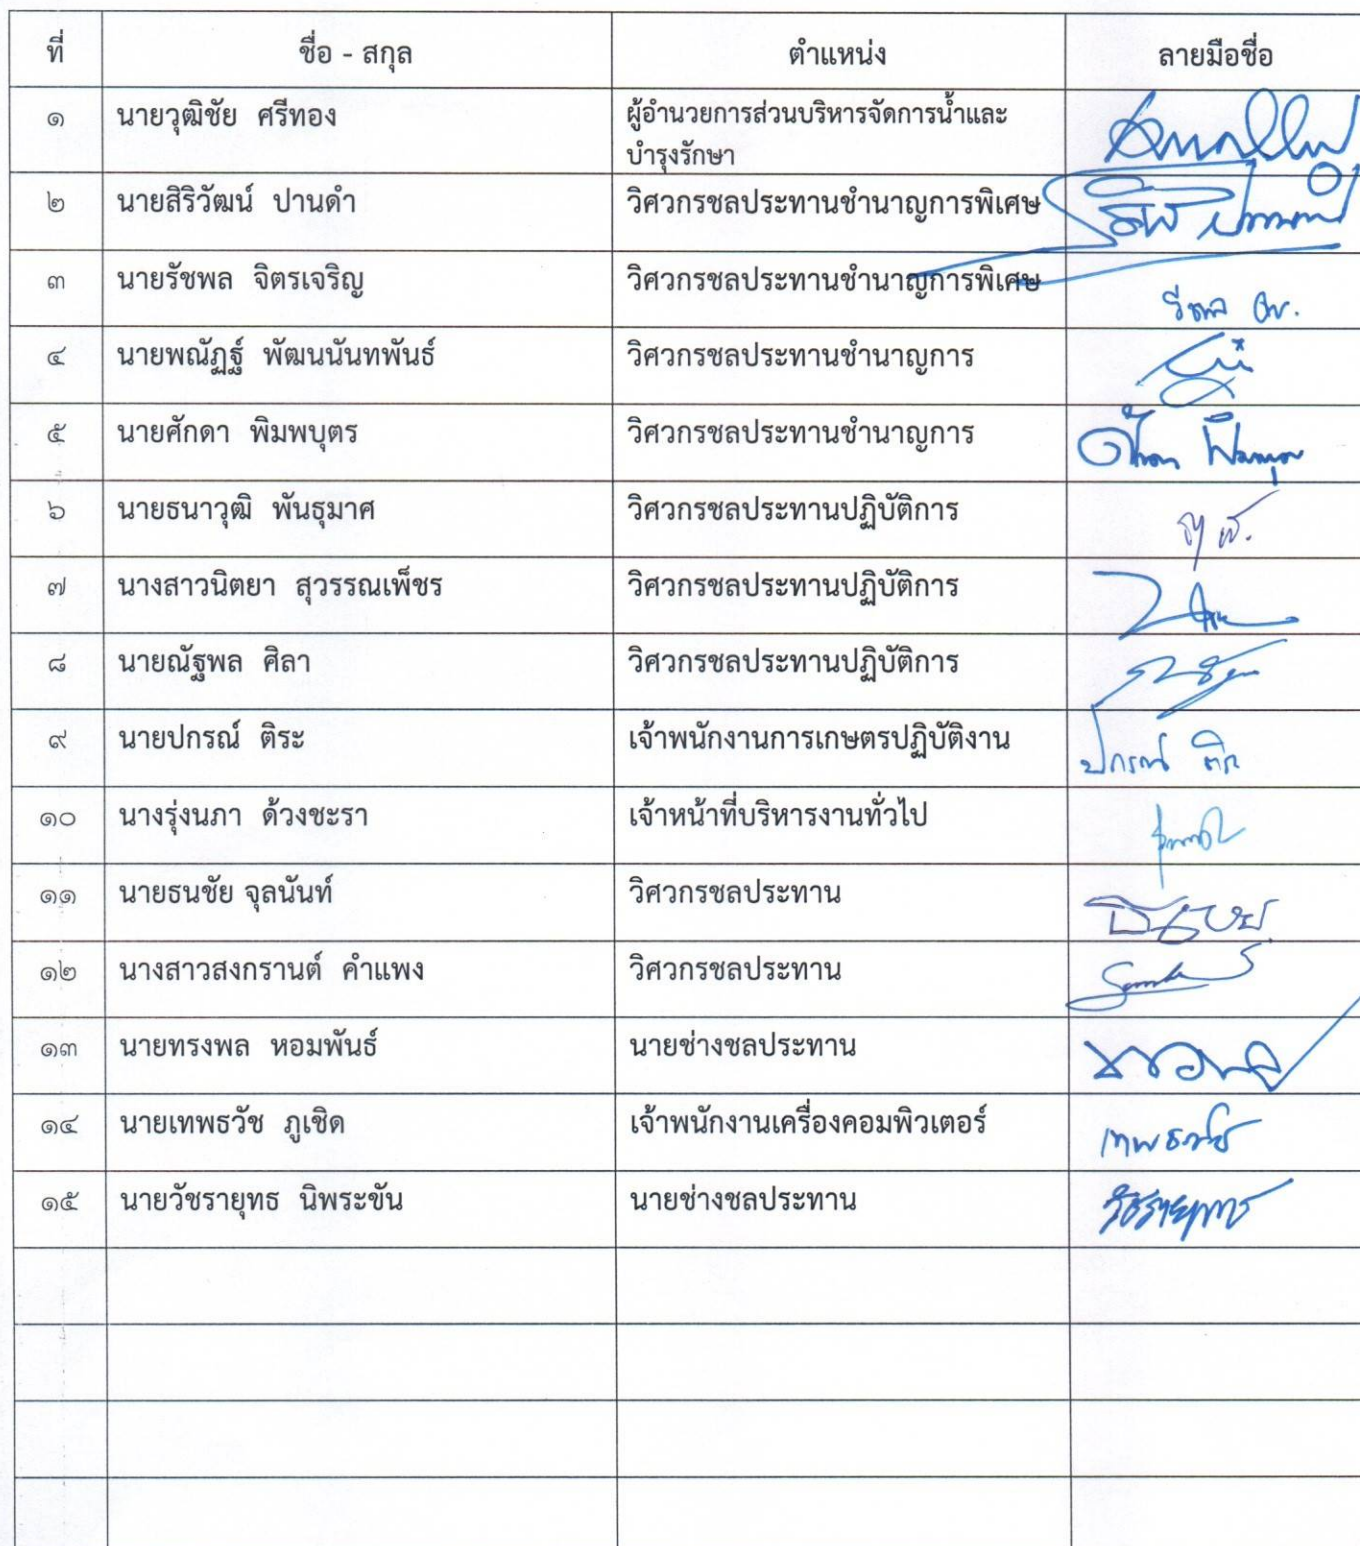 ที่ ชื่อ - สกุล ตำแหน่ง ลายมือชื่อ
๑ นายวุฒิชัย ศรีทอง ผู้อำนวยการส่วนบริหารจัดการน้ำและ
บำรุงรักษา
๒ นายสิริวัฒน์ ปานดำ วิศวกรชลประทานชำนาญการพิเศษ
๓ นายรัชพล จิตรเจริญ วิศวกรชลประทานชำนาญการพิเศษ
๔ นายพณัฏฐ์ พัฒนนันทพันธ์ วิศวกรชลประทานชำนาญการ
๕ นายศักดา พิมพบุตร วิศวกรชลประทานชำนาญการ
๖ นายธนาวุฒิ พันธุมาศ วิศวกรชลประทานปฏิบัติการ
๗ นางสาวนิตยา สุวรรณเพ็ชร วิศวกรชลประทานปฏิบัติการ
๘ นายณัฐพล ศิลา วิศวกรชลประทานปฏิบัติการ
๙ นายปกรณ์ ติระ เจ้าพนักงานการเกษตรปฏิบัติงาน ปกรณ์ ติระ
๑๐ นางรุ่งนภา ด้วงชะรา เจ้าหน้าที่บริหารงานทั่วไป
๑๑ นายธนชัย จุลนันท์ วิศวกรชลประทาน
๑๒ นางสาวสงกรานต์ คำแพง วิศวกรชลประทาน
๑๓ นายทรงพล หอมพันธ์ นายช่างชลประทาน
๑๔ นายเทพธวัช ภูเชิด เจ้าพนักงานเครื่องคอมพิวเตอร์ เทพธวัช
๑๕ นายวัชรายุทธ นิพระขัน นายช่างชลประทาน วัชรายุทธ